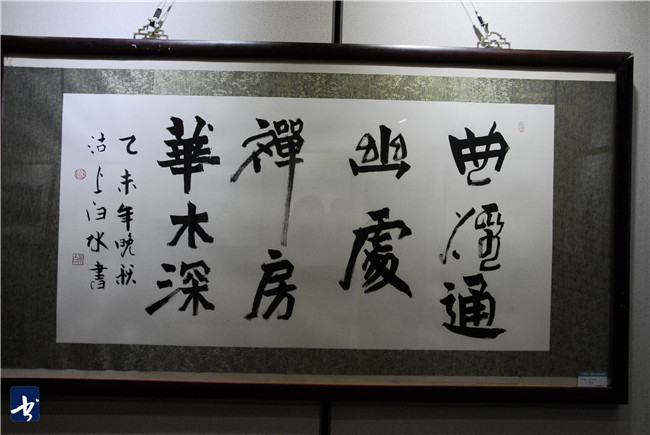 曲徑通
幽處
禪房
華木深
乙未年晚秋
沽上泊水書